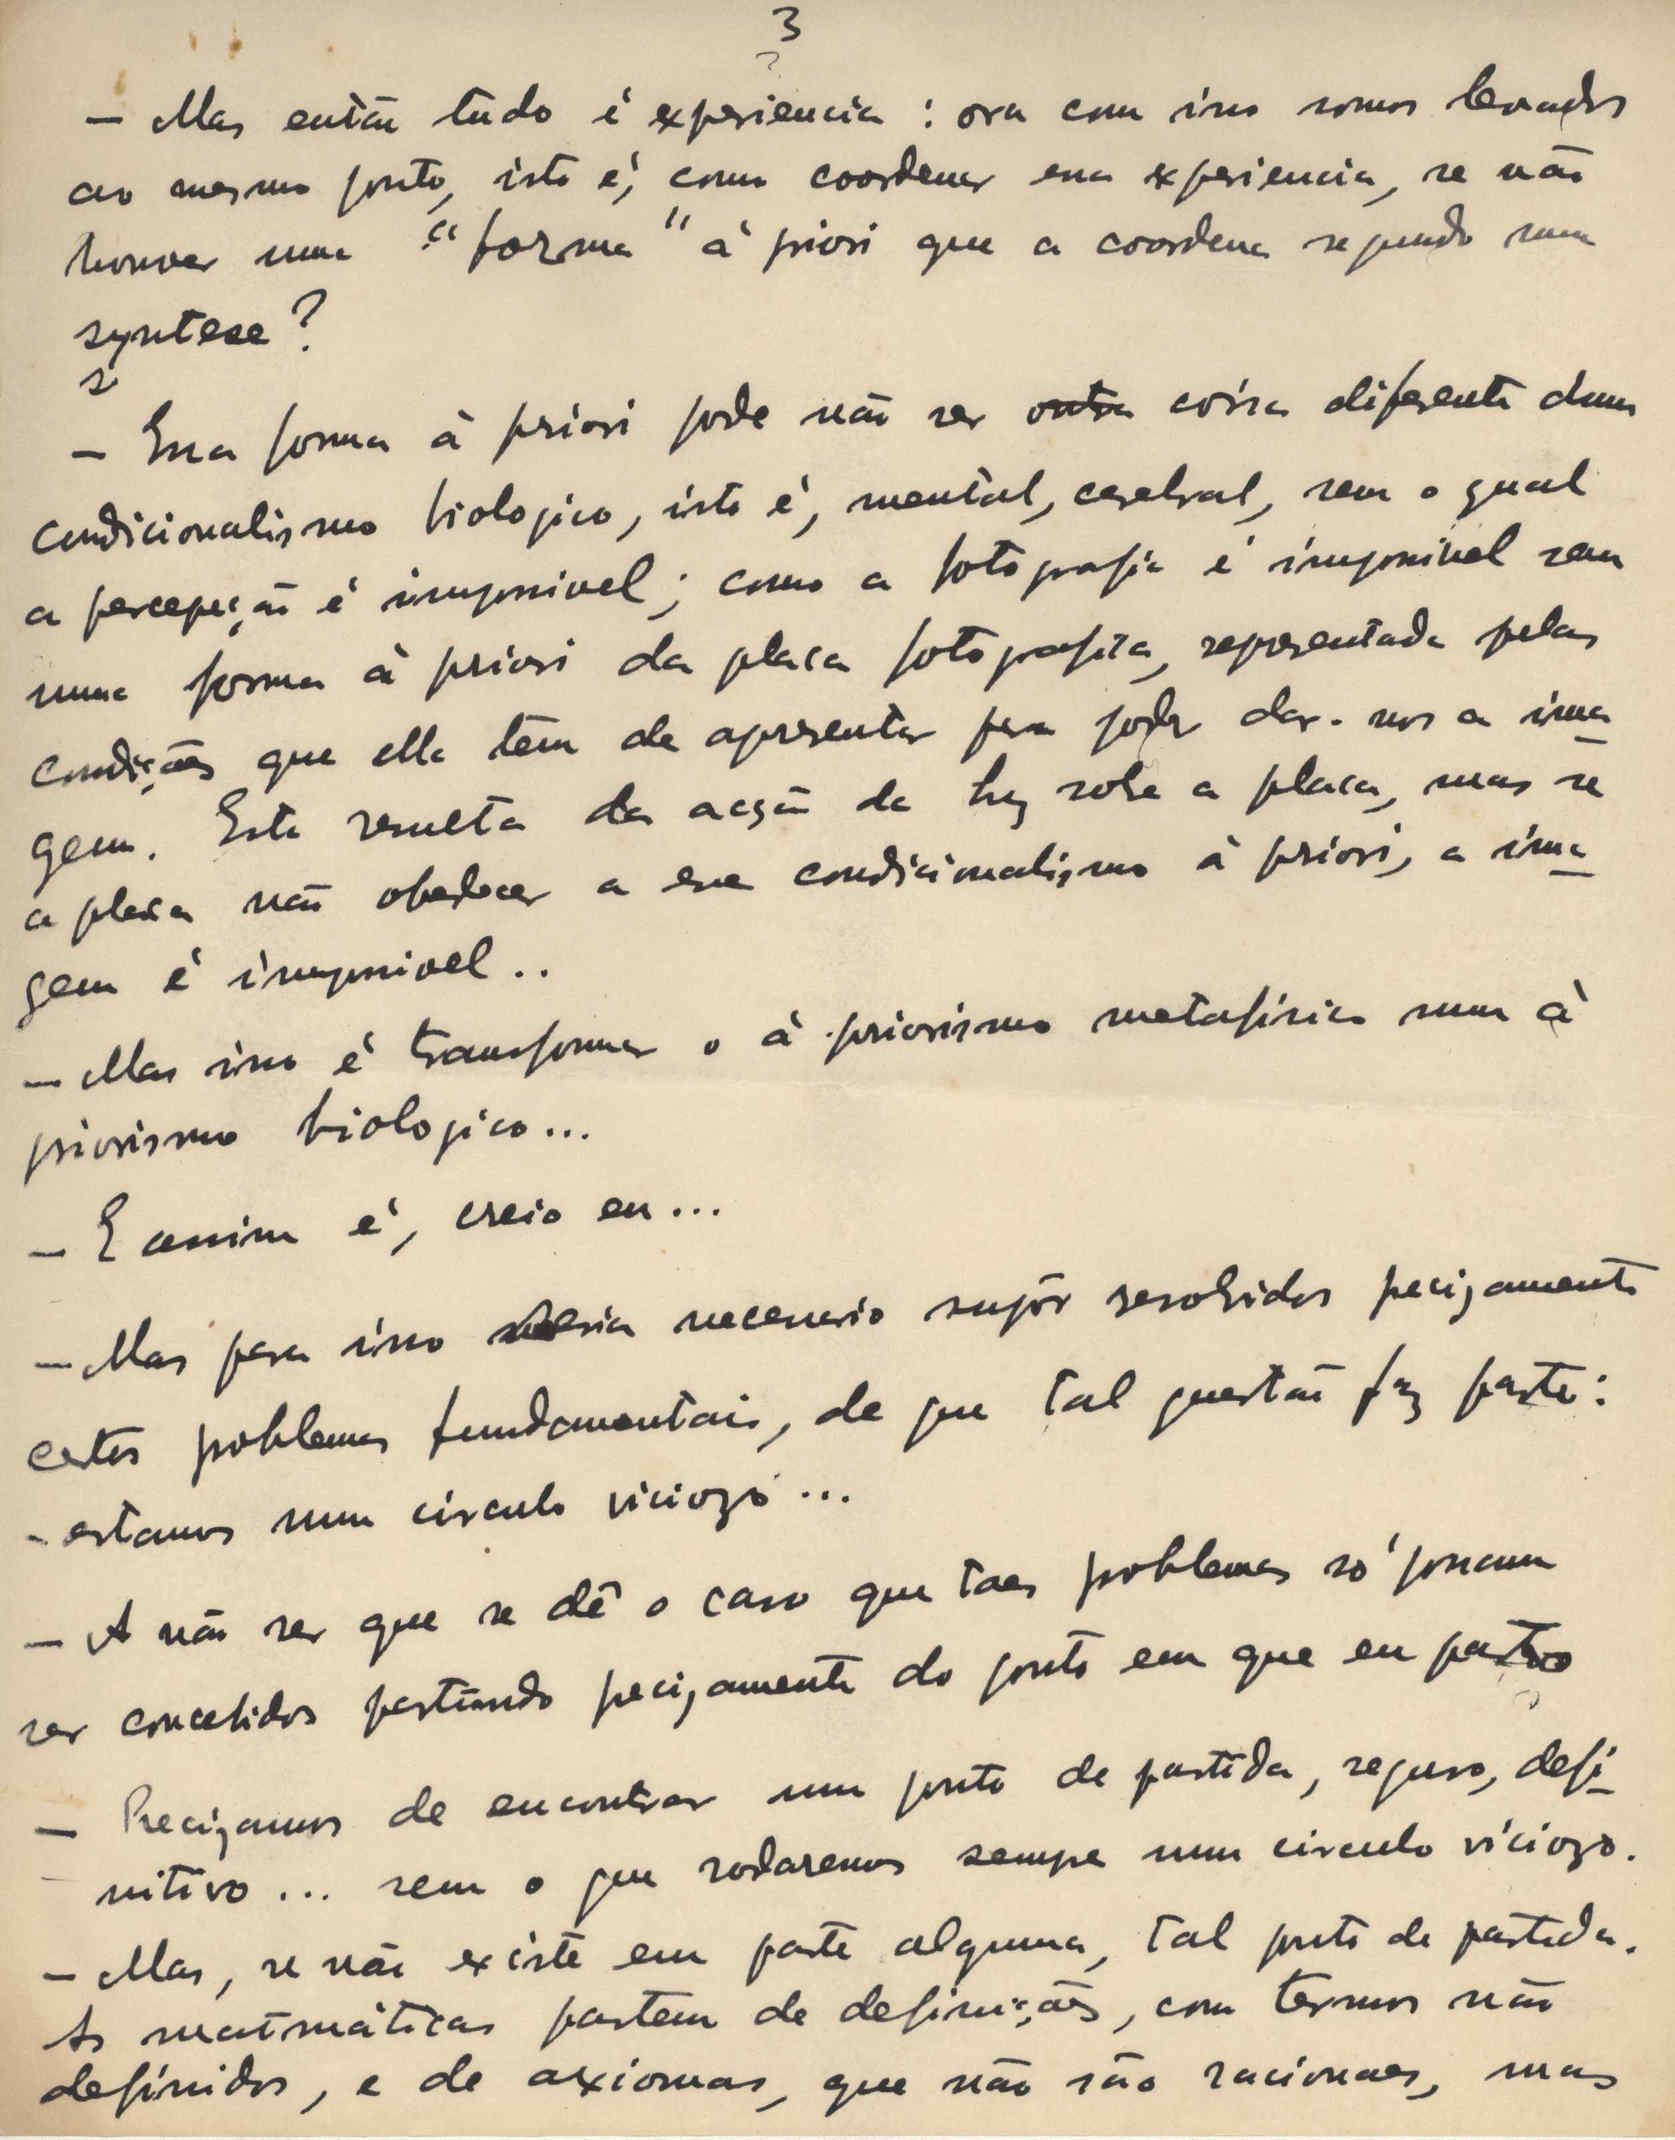 3
— Mas então tudo é experiencia : ora com isso somos levados
ao mesmo ponto, isto é, como coordenar essa experiencia, se não
houver uma "forma" à priori que a coordena segundo uma
syntese?
— Essa forma à priori pode não ser outra coisa diferente dum
condicionalismo biologico, isto é, mental, cerebral, sem o qual
a percepção é impossivel; como a fotografia é impossivel sem
uma forma à priori da placa fotografica, representada pelas
condições que ella tem de apresentar para poder dar-nos a ima-
gem. Esta resulta da acção da luz sobre a placa, mas se
a placa não obedecer a esse condicionalismo à priori, a ima-
gem é impossivel..
— Mas isso é transformar o à priorismo metafisico num à
priorismo biologico...
— E assim é, creio eu...
— Mas para isso seria necessario supôr resolvidos precizamente
certos problemas fundamentais, de que tal questão faz parte:
- estamos num circulo viciozo...
— A não ser que se dê o caso que taes problemas só possam
ser concebidos partindo precizamente do ponto em que eu parto
— Precizamos de encontrar um ponto de partida, seguro, defi-
nitivo... sem o que rodaremos sempre num circulo viciozo.
— Mas, se não existe em parte alguma, tal ponto de partida.
As matmáticas partem de definições, com termos não
definidos, e de axiomas, que não são racionaes, mas